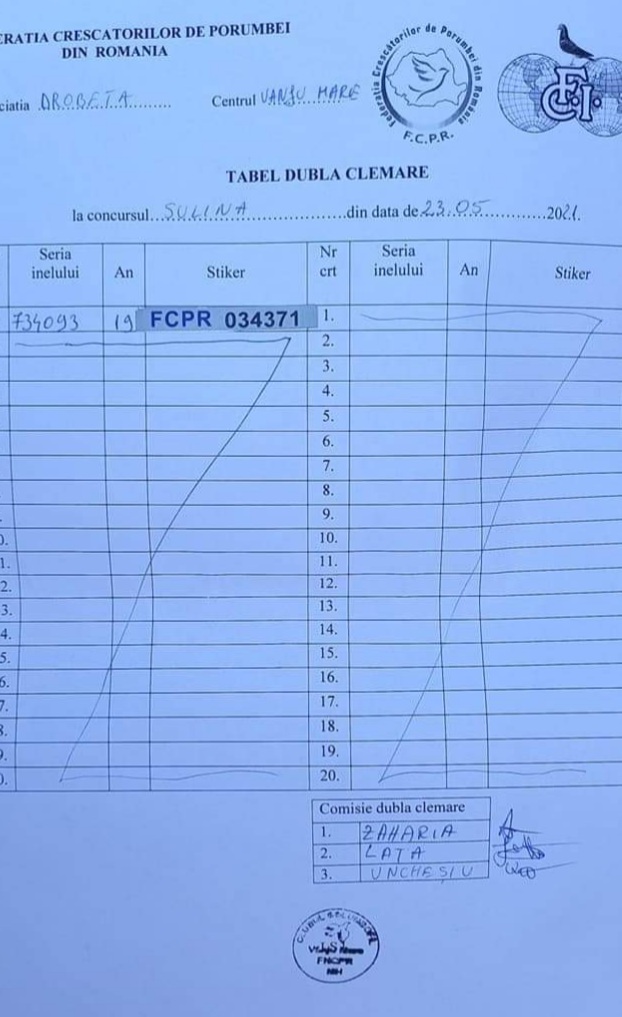 ERATIA CRESCATORILOR DE PORUMBEI
DIN ROMANIA
Federatia Crescătorilor de Porumbei din România
F.C.P.R.
FCI
ciatia DROBETA......... Centrul VANJU MARE
TABEL DUBLA CLEMARE
la concursul...SULINA........................din data de 23.05............2021.
Seria inelului An Stiker Nr crt Seria inelului An Stiker
734093 19 FCPR 034371 1.
2.
3.
4.
5.
6.
7.
8.
9.
0. 10.
1. 11.
2. 12.
3. 13.
4. 14.
5. 15.
6. 16.
7. 17.
8. 18.
9. 19.
0. 20.
Comisie dubla clemare
1. ZAHARIA
2. LATA
3. UNCHESIU
FNCPR
MH